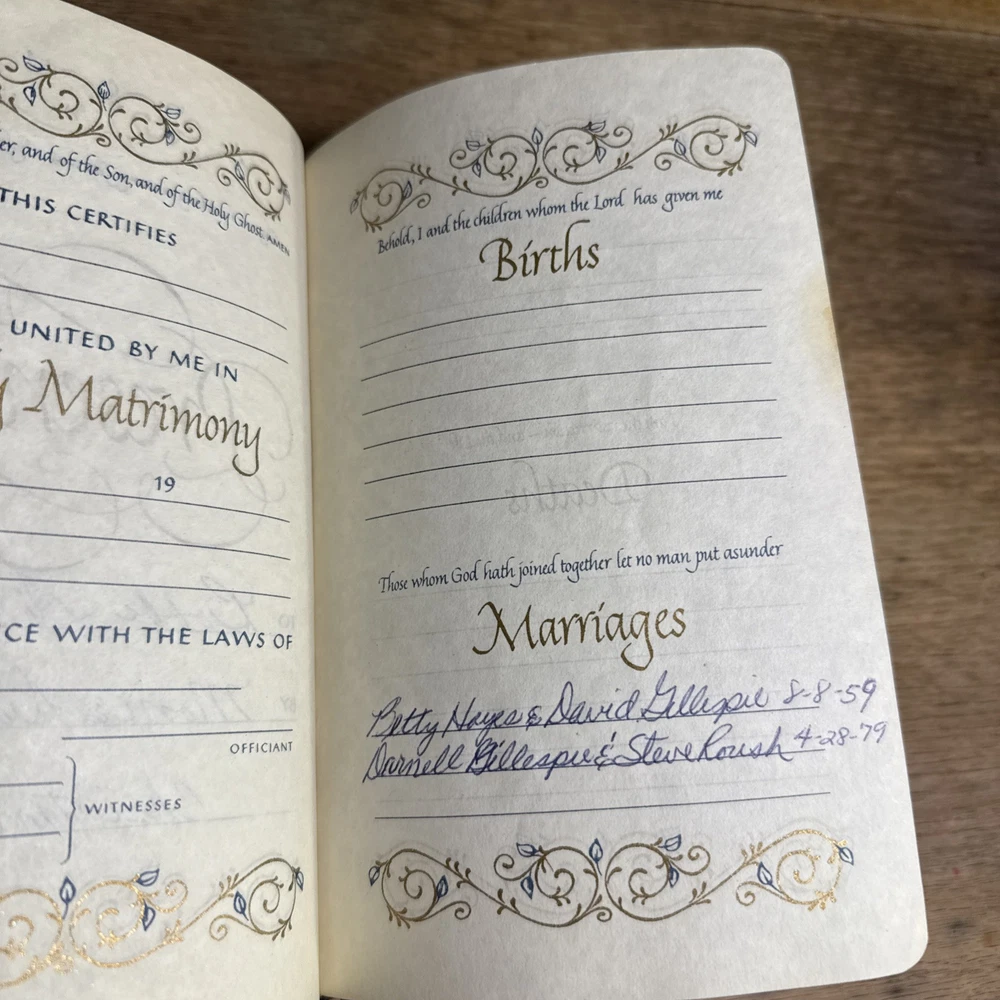 er, and of the Son, and of the Holy Ghost. AMEN
THIS CERTIFIES
UNITED BY ME IN
y Matrimony
19
CE WITH THE LAWS OF
OFFICIANT
WITNESSES
Behold, I and the children whom the Lord has given me
Births
Deaths
Those whom God hath joined together let no man put asunder
Marriages
Betty Hayes & David Gillespie 8-8-59
Darnell Gillespie & Steve Roush 4-28-79